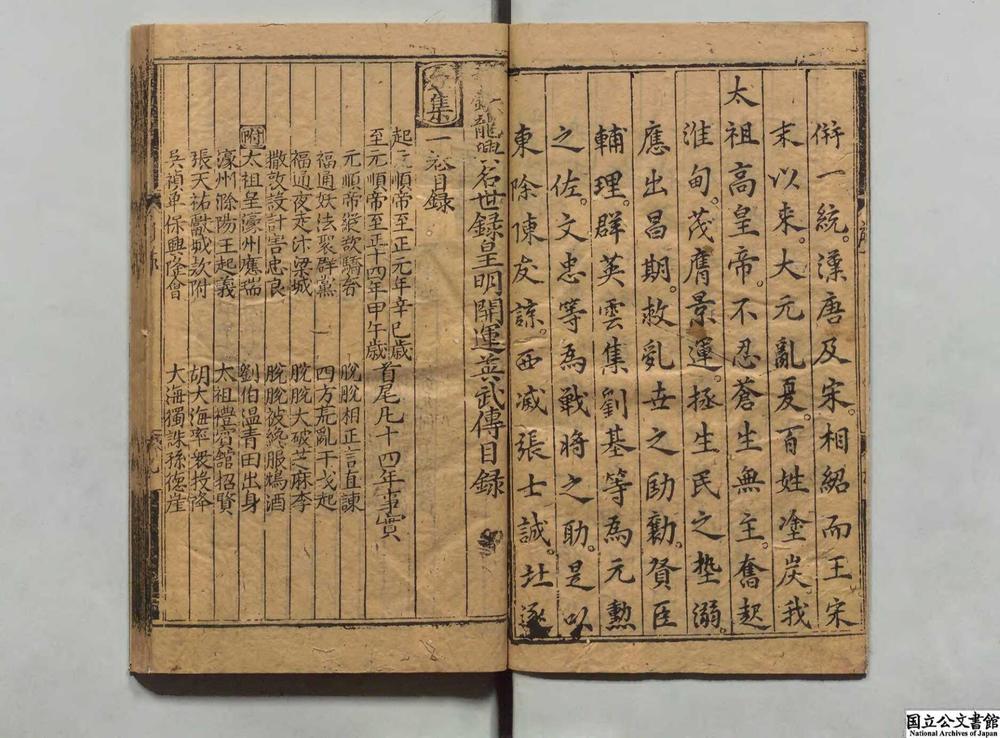 併一統。漢唐及宋。相紹而王宋
末以来。大元亂夏。百姓塗炭我
太祖高皇帝。不忍蒼生無主。奮起
淮甸。茂膺景運。拯生民之墊溺。
應出昌期。救亂世之劻勷。賢臣
輔理。群英雲集劉基等為元勲
之佐。文忠等為戰將之助。是以
東除陳友諒。西滅張士誠。北逐
龍興名世録皇明開運英武傳目録
集
一卷目録
起元順帝至正元年辛巳歳
至元順帝至正十四年甲午歳
首尾凡十四年事實
元順帝縱欲驕奢 脫脫相正言直諫
福通妖法聚群黨 四方荒亂干戈起
福通夜走汴梁城 脫脫大破芝麻李
撒敦設計害忠良 脫脫被總服鴆酒
附 太祖呈濠州應瑞 劉伯温青田出身
濠州滁陽王起義 太祖禮賓館招賢
張天祐獻城款附 胡大海率衆投降
吳禎單保興隆會 大海獨誅孫德崖
国立公文書館
National Archives of Japan